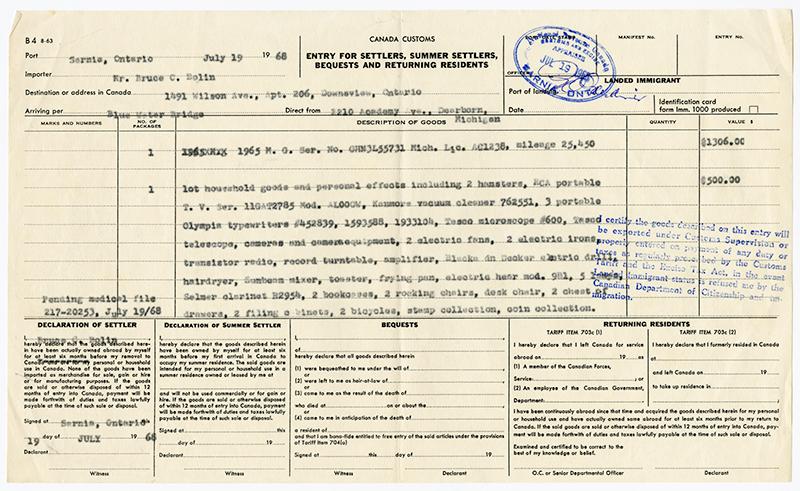 B4 8-63
CANADA CUSTOMS
ENTRY FOR SETTLERS, SUMMER SETTLERS,
BEQUESTS AND RETURNING RESIDENTS
MANIFEST No.
ENTRY No.
Port Sernia, Ontario July 19 19 68
Importer Mr. Bruce C. Bolin
Destination or address in Canada 1491 Wilson Ave., Apt. 206, Downsview, Ontario
Arriving per Blue Water Bridge Direct from 3210 Academy Ave., Dearborn, Michigan
APPRAISED
JUL 19
SARNIA ONT.
LANDED IMMIGRANT
Port of landing
Date
Identification card
form Imm. 1000 produced
MARKS AND NUMBERS
NO. OF PACKAGES
DESCRIPTION OF GOODS
QUANTITY
VALUE $
1 1965 M. G. Ser. No. GHN3L55731 Mich. Lic. AC1238, mileage 25,450 $1306.00
1 lot household goods and personal effects including 2 hamsters, RCA portable $500.00
T. V. Ser. 11GAT2785 Mod. AL000W, Kenmore vacuum cleaner 762551, 3 portable
Olympia typewriters #452839, 1593588, 1933104, Tasco microscope #600, Tasco
telescope, cameras and cameraequipment, 2 electric fans, 2 electric irons
transistor radio, record turntable, amplifier, Drill,
hairdryer, Sunbeam mixer, toaster, frying pan, electric hear mod. 9B1, 5
Selmer clarinet R2954, 2 bookcases, 2 rocking chairs, desk chair, 2 chest of
drawers, 2 filing c binets, 2 bicycles, stamp collection, coin collection.
Pending medical file
217-20253, July 19/68
I certify the goods described on this entry will
be exported under Customs Supervision or
properly entered on payment of any duty or
taxes as regularly prescribed by the Customs
Tariff and the Excise Tax Act, in the event
Landed Immigrant status is refused me by the
Canadian Department of Citizenship and Im-
migration.
DECLARATION OF SETTLER
I, Bruce C. Bolin
hereby declare all the goods described here-
in have been actually owned abroad by myself
for at least six months before my removal to
Canada and are for my personal or household
use in Canada. None of the goods have been
imported as merchandise for sale, gain or hire
or for manufacturing purposes. If the goods
are sold or otherwise disposed of within 12
months of entry into Canada, payment will be
made forthwith of duties and taxes lawfully
payable at the time of such sale or disposal.
Signed at Sernia, Ontario
19 day of JULY 19 68
Witness
DECLARATION OF SUMMER SETTLER
I,
hereby declare that the goods described herein
have been owned by myself for at least six
months before my first arrival in Canada to
occupy my summer residence. The said goods are
intended for my personal or household use in a
summer residence owned or leased by me at
and will not be used commercially or for gain or
hire. If the goods are sold or otherwise disposed
of within 12 months of entry into Canada, payment
will be made forthwith of duties and taxes lawfully
payable at the time of such sale or disposal.
Signed at this
day of 19
Witness Declarant
BEQUESTS
I,
of
hereby declare all goods described herein
(1) were bequeathed to me under the will of
or
(2) were left to me as heir-at-law of
or
(3) come to me as the result of the death of
who died at on or about the
or
(4) come to me in anticipation of the death of
a resident of
and that I am bona-fide entitled to free entry of the said articles under the provisions
of Tariff Item 704(a)
Signed at this day of 19
Witness Declarant
RETURNING RESIDENTS
TARIFF ITEM 703c (1)
I hereby declare that I left Canada for service
abroad on 19 as
(1) A member of the Canadian Forces,
Service: , or
(2) An employee of the Canadian Government,
Department:
TARIFF ITEM 703c (2)
I hereby declare that I formerly resided in Canada
at
and left Canada on 19
to take up residence in
I have been continuously abroad since that time and acquired the goods described herein for my personal
or household use and have actually owned same abroad for at least six months prior to my return to
Canada. If the said goods are sold or otherwise disposed of within 12 months of entry into Canada, pay-
ment will be made forthwith of duties and taxes lawfully payable at the time of such sale or disposal.
Examined and certified to be correct to the
best of my knowledge or belief.
O.C. or Senior Departmental Officer
Declarant